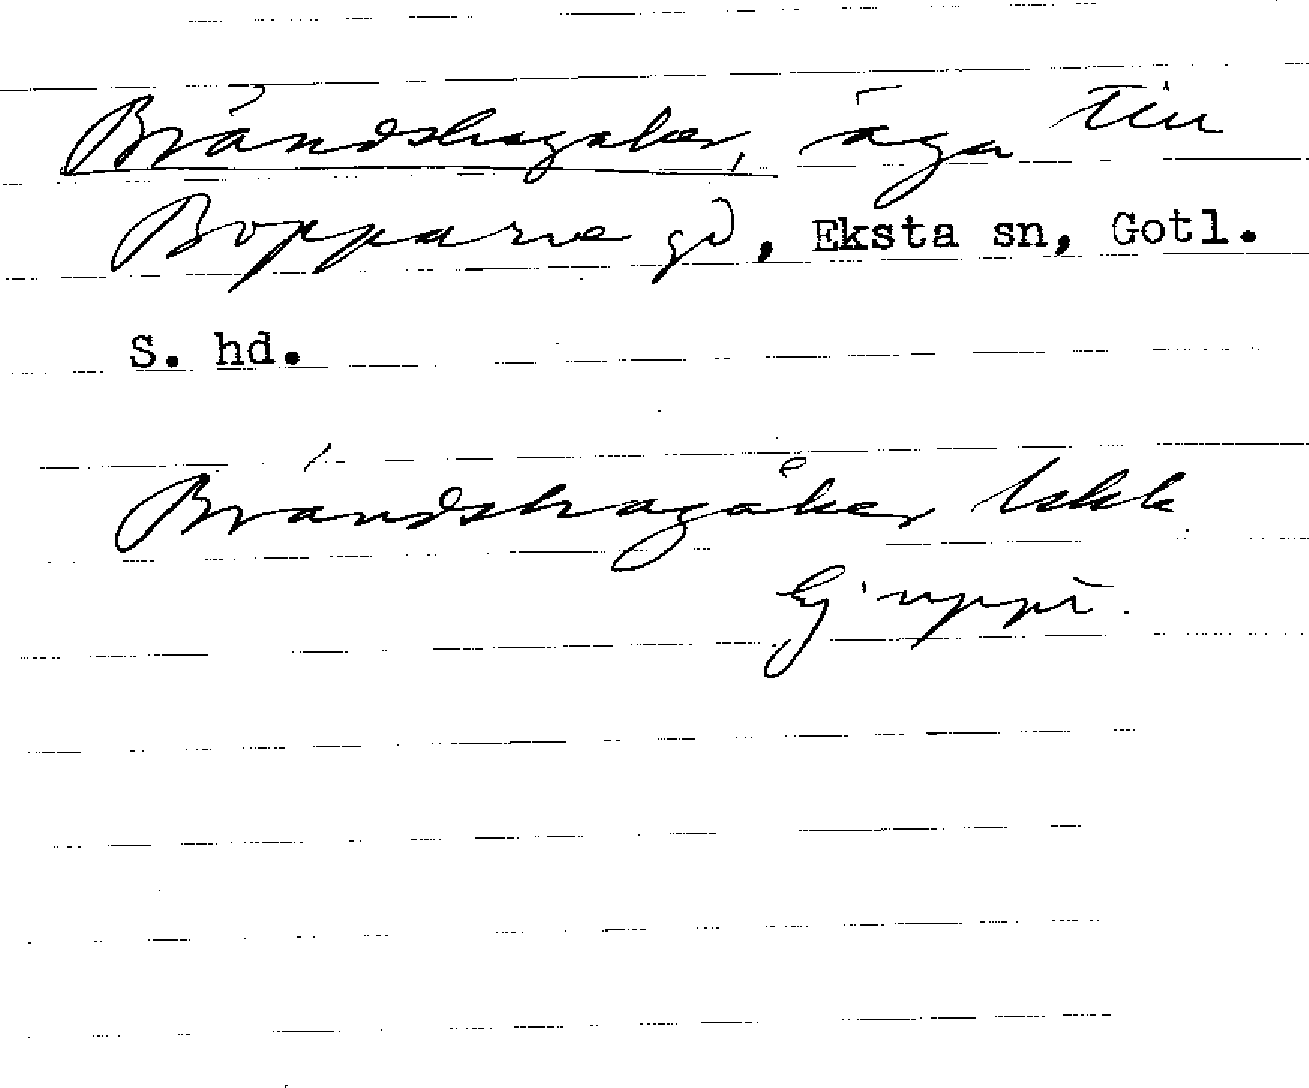 Brändshagaker, äga till
Bopparve gd, Eksta sn, Gotl.
S. hd.
Brändshagåker Lskk
Ej uppt.